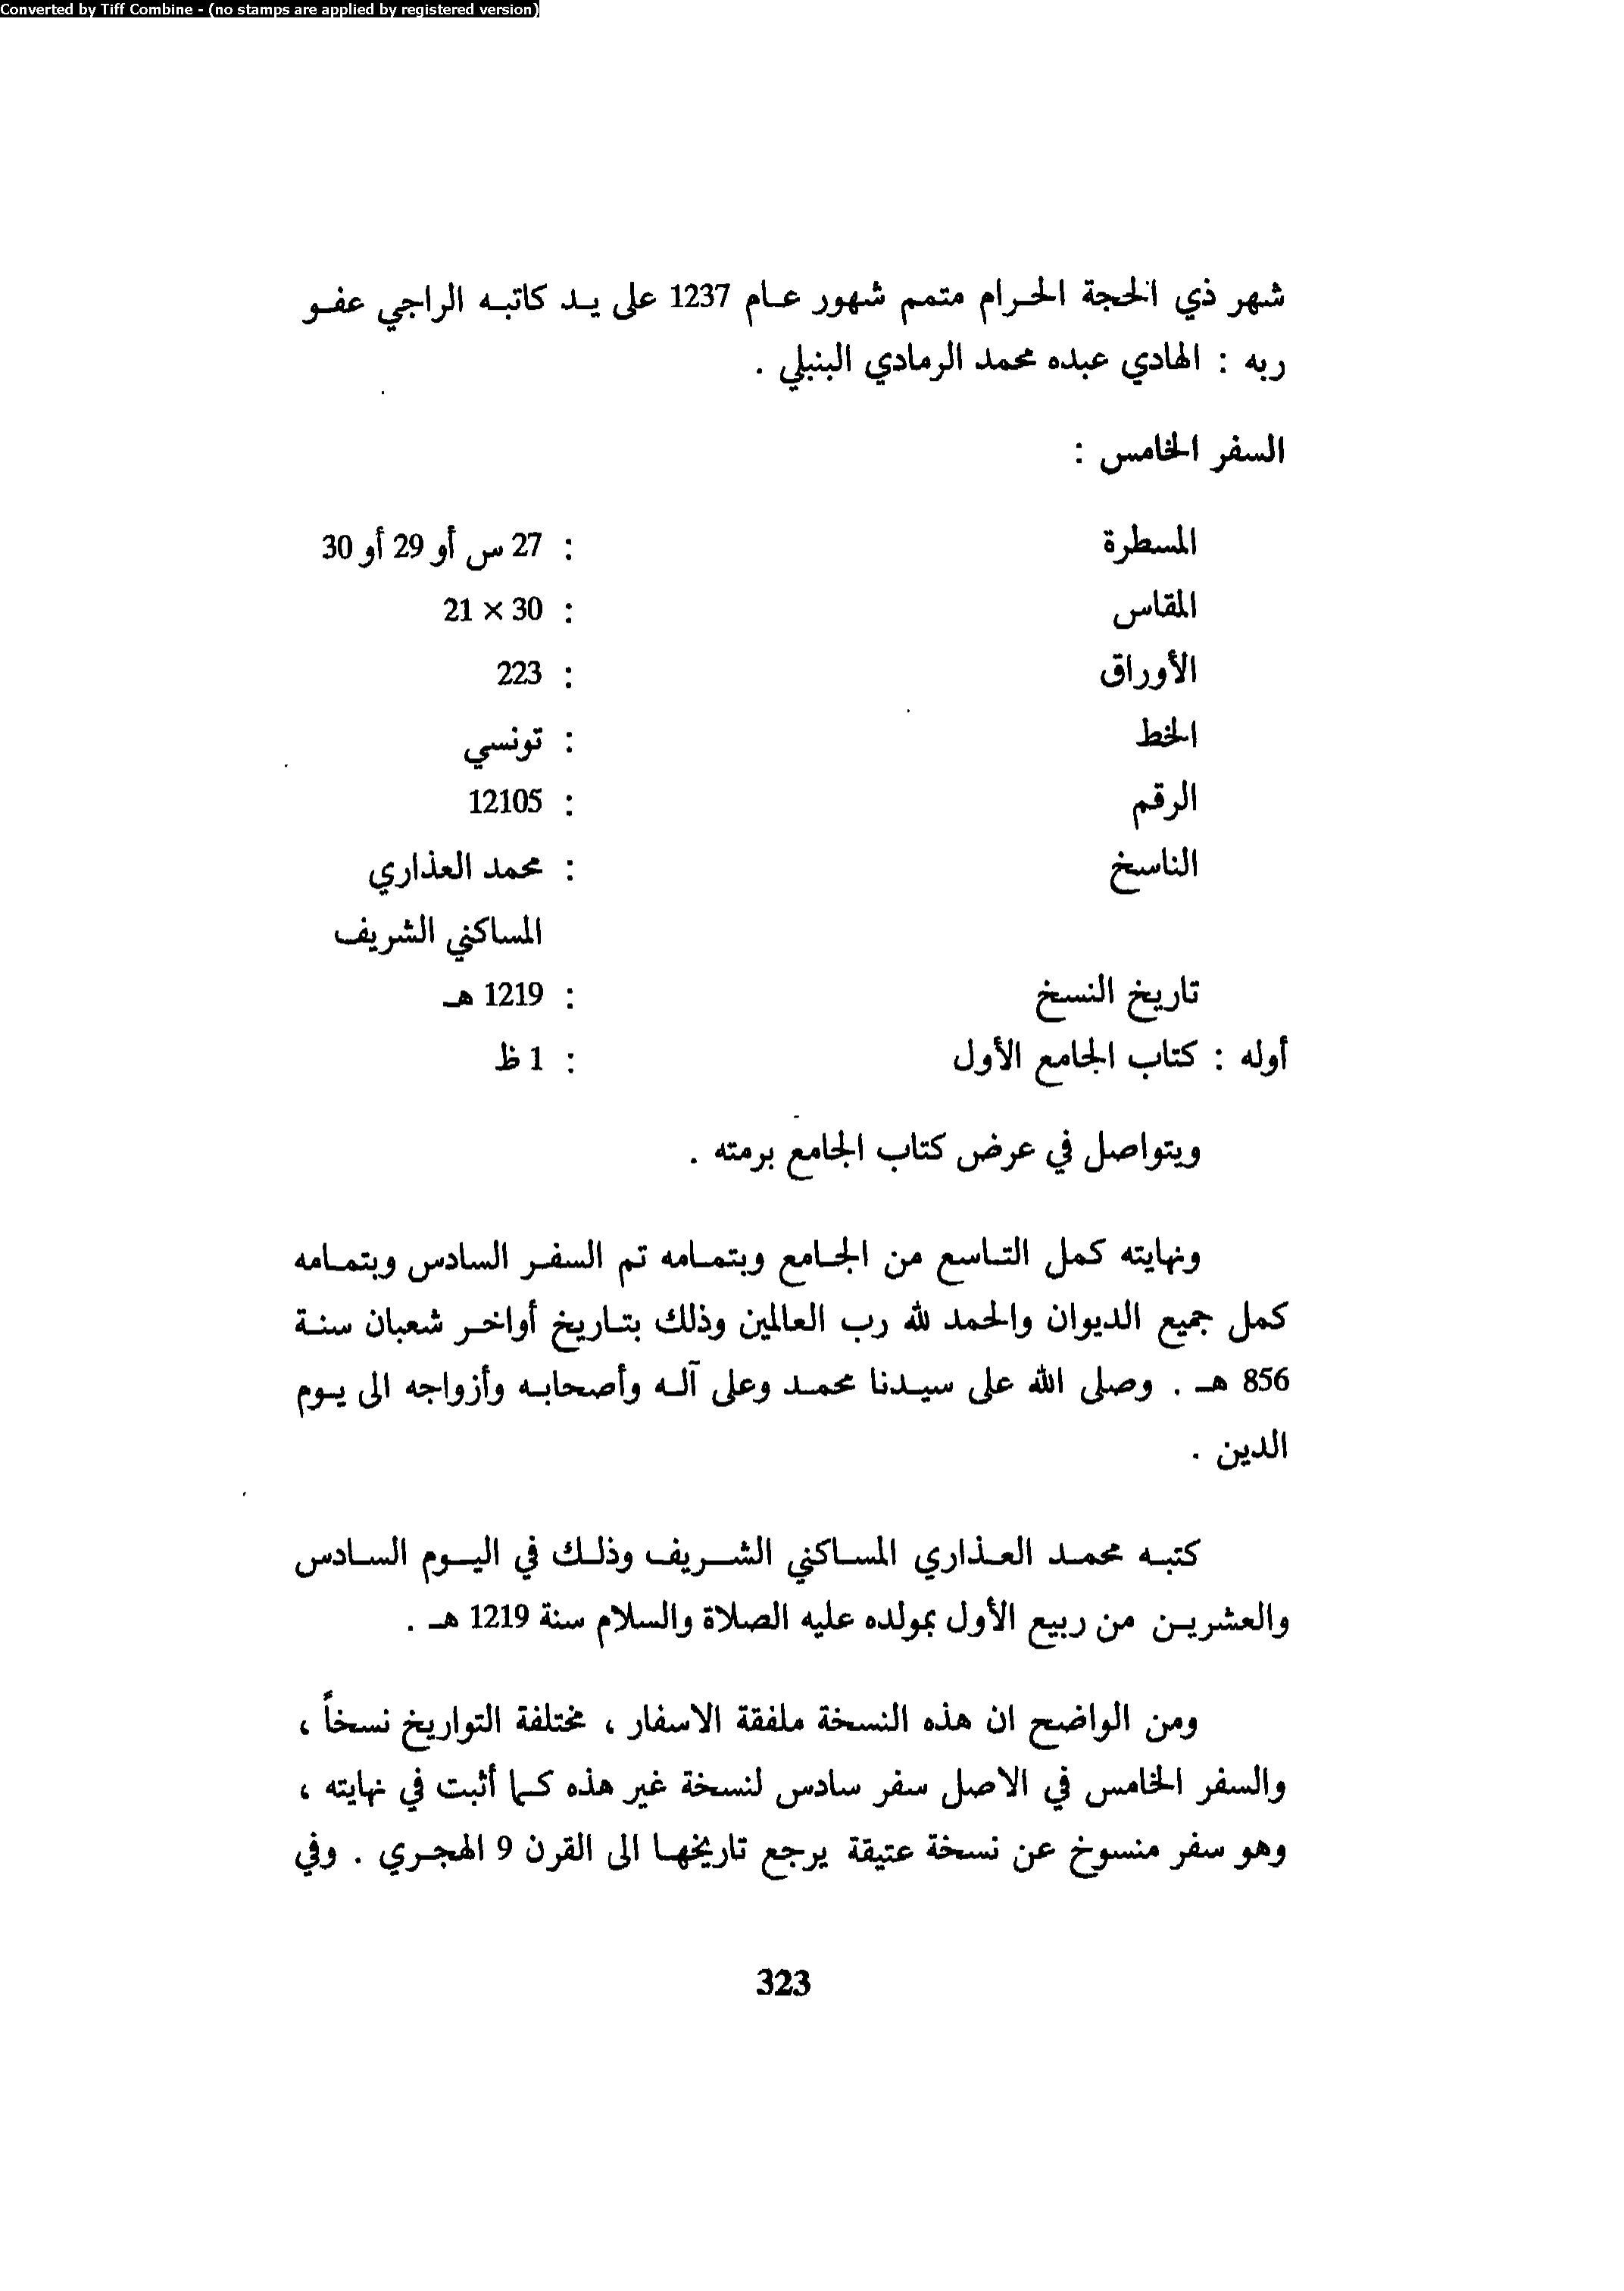 Converted by Tiff Combine - (no stamps are applied by registered version)
شهر ذي الحجة الحرام متمم شهور عام 1237 على يد كاتبه الراجي عفو
ربه : الهادي عبده محمد الرمادي البنبلي .
السفر الخامس :
المسطرة : 27 س أو 29 أو 30
المقاس : 30 × 21
الأوراق : 223
الخط : تونسي
الرقم : 12105
الناسخ : محمد العذاري
المساكني الشريف
تاريخ النسخ : 1219 هـ
أوله : كتاب الجامع الأول : 1 ظ
ويتواصل في عرض كتاب الجامع برمته .
ونهايته كمل التاسع من الجامع وبتمامه تم السفر السادس وبتمامه
كمل جميع الديوان والحمد لله رب العالمين وذلك بتاريخ أواخر شعبان سنة
856 هـ . وصلى الله على سيدنا محمد وعلى آله وأصحابه وأزواجه الى يوم
الدين .
كتبه محمد العذاري المساكني الشريف وذلك في اليوم السادس
والعشرين من ربيع الأول بمولده عليه الصلاة والسلام سنة 1219 هـ .
ومن الواضح ان هذه النسخة ملفقة الاسفار ، مختلفة التواريخ نسخاً ،
والسفر الخامس في الاصل سفر سادس لنسخة غير هذه كما أثبت في نهايته ،
وهو سفر منسوخ عن نسخة عتيقة يرجع تاريخها الى القرن 9 الهجري . وفي
323